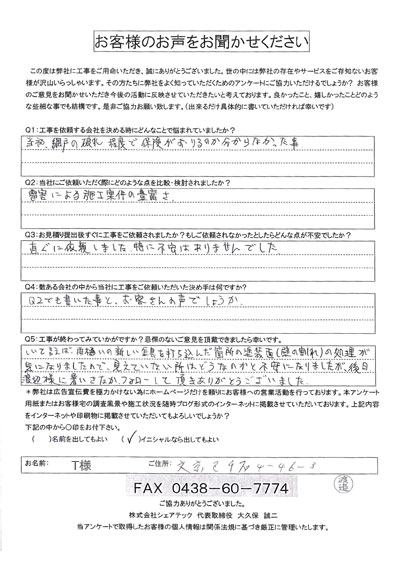 お客様のお声をお聞かせください
この度は弊社に工事をご用命いただき、誠にありがとうございました。世の中には弊社の存在やサービスをご存知ないお客
様が沢山いらっしゃいます。その方たちに弊社をよく知っていただくためのアンケートにご協力いただけるでしょうか？ お客様
のご意見をお聞かせいただき今後の活動に反映させていただきたいと考えております。良かったこと、嬉しかったことどのよう
な些細な事でも結構です。是非ご協力お願い致します。（出来るだけ具体的に書いていただければ幸いです）
Q1：工事を依頼する会社を決める時にどんなことで悩まれていましたか？
当初、網戸の破れ程度で保険がおりるのか分からなかった事
Q2：当社にご依頼いただく際にどのような点を比較・検討されましたか？
雪害による施工案件の豊富さ
Q3：お見積り提出後すぐに工事をご依頼されましたか？もしご依頼されなかったとしたらどんな点が不安でしたか？
直ぐに依頼しました 特に不安はありませんでした
Q4：数ある会社の中から当社に工事をご依頼いただいた決め手は何ですか？
Q2でも書いた事と、お客さんの声でしょうか
Q5：工事が終わってみていかがですか？忌憚のないご意見を頂戴できましたら幸いです。
いて言えば、雨樋いの新しい金具を打ち込んだ箇所の塗装面(壁の割れ)の処理が
気になりましたので、見えていない所はどうなのかと不安になりましたが、後日
渡辺様に暑いさなか、フォローして頂きありがとうございました
＊弊社は広告宣伝費を極力かけない為にホームページだけを頼りにお客様への営業活動を行っております。本アンケート
用紙またはお客様宅の調査風景や施工状況を随時ブログ形式のインターネットに掲載させていただいております。上記内容
をインターネットや印刷物に掲載させていただいてもよろしいでしょうか？
下記の中から〇印をお付下さい。
（　）名前を出してもよい （〇）イニシャルなら出してもよい
お名前： T様 ご住所：
FAX 0438-60-7774
渡辺
ご協力ありがとうございました。
株式会社シェアテック 代表取締役 大久保 誠二
当アンケートで取得したお客様の個人情報は関係法規に基づき厳正に管理いたします。